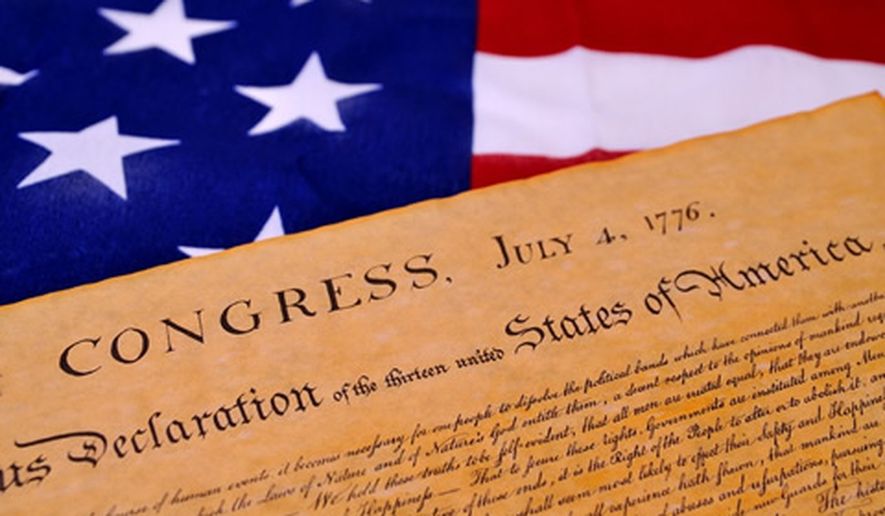 CONGRESS, JULY 4, 1776.
us Declaration of the thirteen united States of America,
course of human events it becomes necessary for one people to dissolve the political bands which have connected them with another
the Laws of Nature and of Nature's God entitle them, a decent respect to the opinions of mankind
We hold these truths to be self-evident, that all men are created equal, that they are endowed
Happiness— That to secure these rights, Governments are instituted among Men,
of these ends, it is the Right of the People to alter or to abolish it, and
shall seem most likely to effect their Safety and Happiness
all experience hath shewn, that mankind are
abuses and usurpations, pursuing
new Guards for their
The history